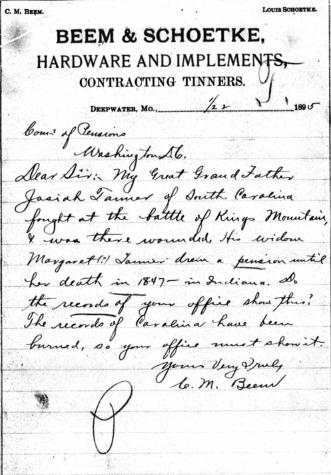 C. M. BEEM. LOUIS SCHOETKE.
BEEM & SCHOETKE,
HARDWARE AND IMPLEMENTS,
CONTRACTING TINNERS.
DEEPWATER, MO., 1/22 1895
Com. of Pensions
Washington D.C.
Dear Sir:- My Great Grand Father
Josiah Tanner of South Carolina
fought at the battle of Kings Mountain,
& was there wounded. His widow
Margaret (?) Tanner drew a pension until
her death in 1847 - in Indiana. Do
the records of your office show this?
The records of Carolina have been
burned, so your office must show it.
Yours Very Truly
C. M. Beem